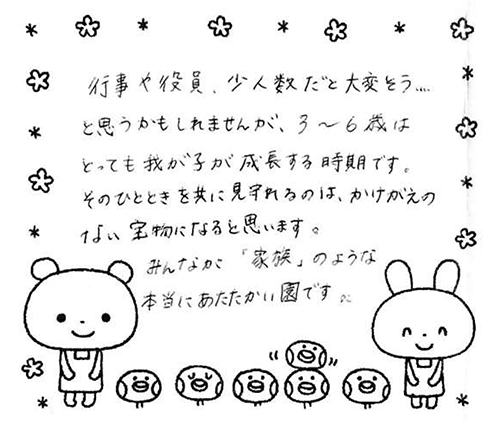 行事や役員、少人数だと大変そう....
と思うかもしれませんが、3〜6歳は
とっても我が子が成長する時期です。
そのひとときを共に見守れるのは、かけがえの
ない宝物になると思います。
みんなが「家族」のような
本当にあたたかい園です。